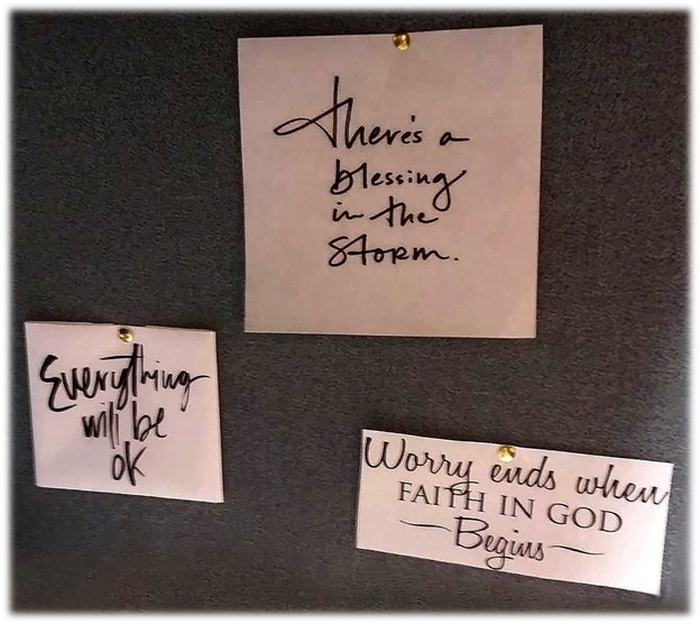 There's a
blessing
in the
storm.
Everything
will be
OK
Worry ends when
FAITH IN GOD
Begins